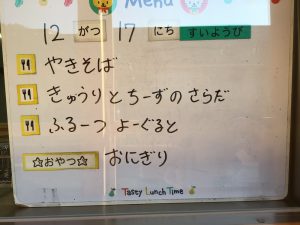 Menu
12 がつ 17 にち すいようび
やきそば
きゅうりとちーずのさらだ
ふるーつよーぐると
☆おやつ☆ おにぎり
Tasty Lunch Time